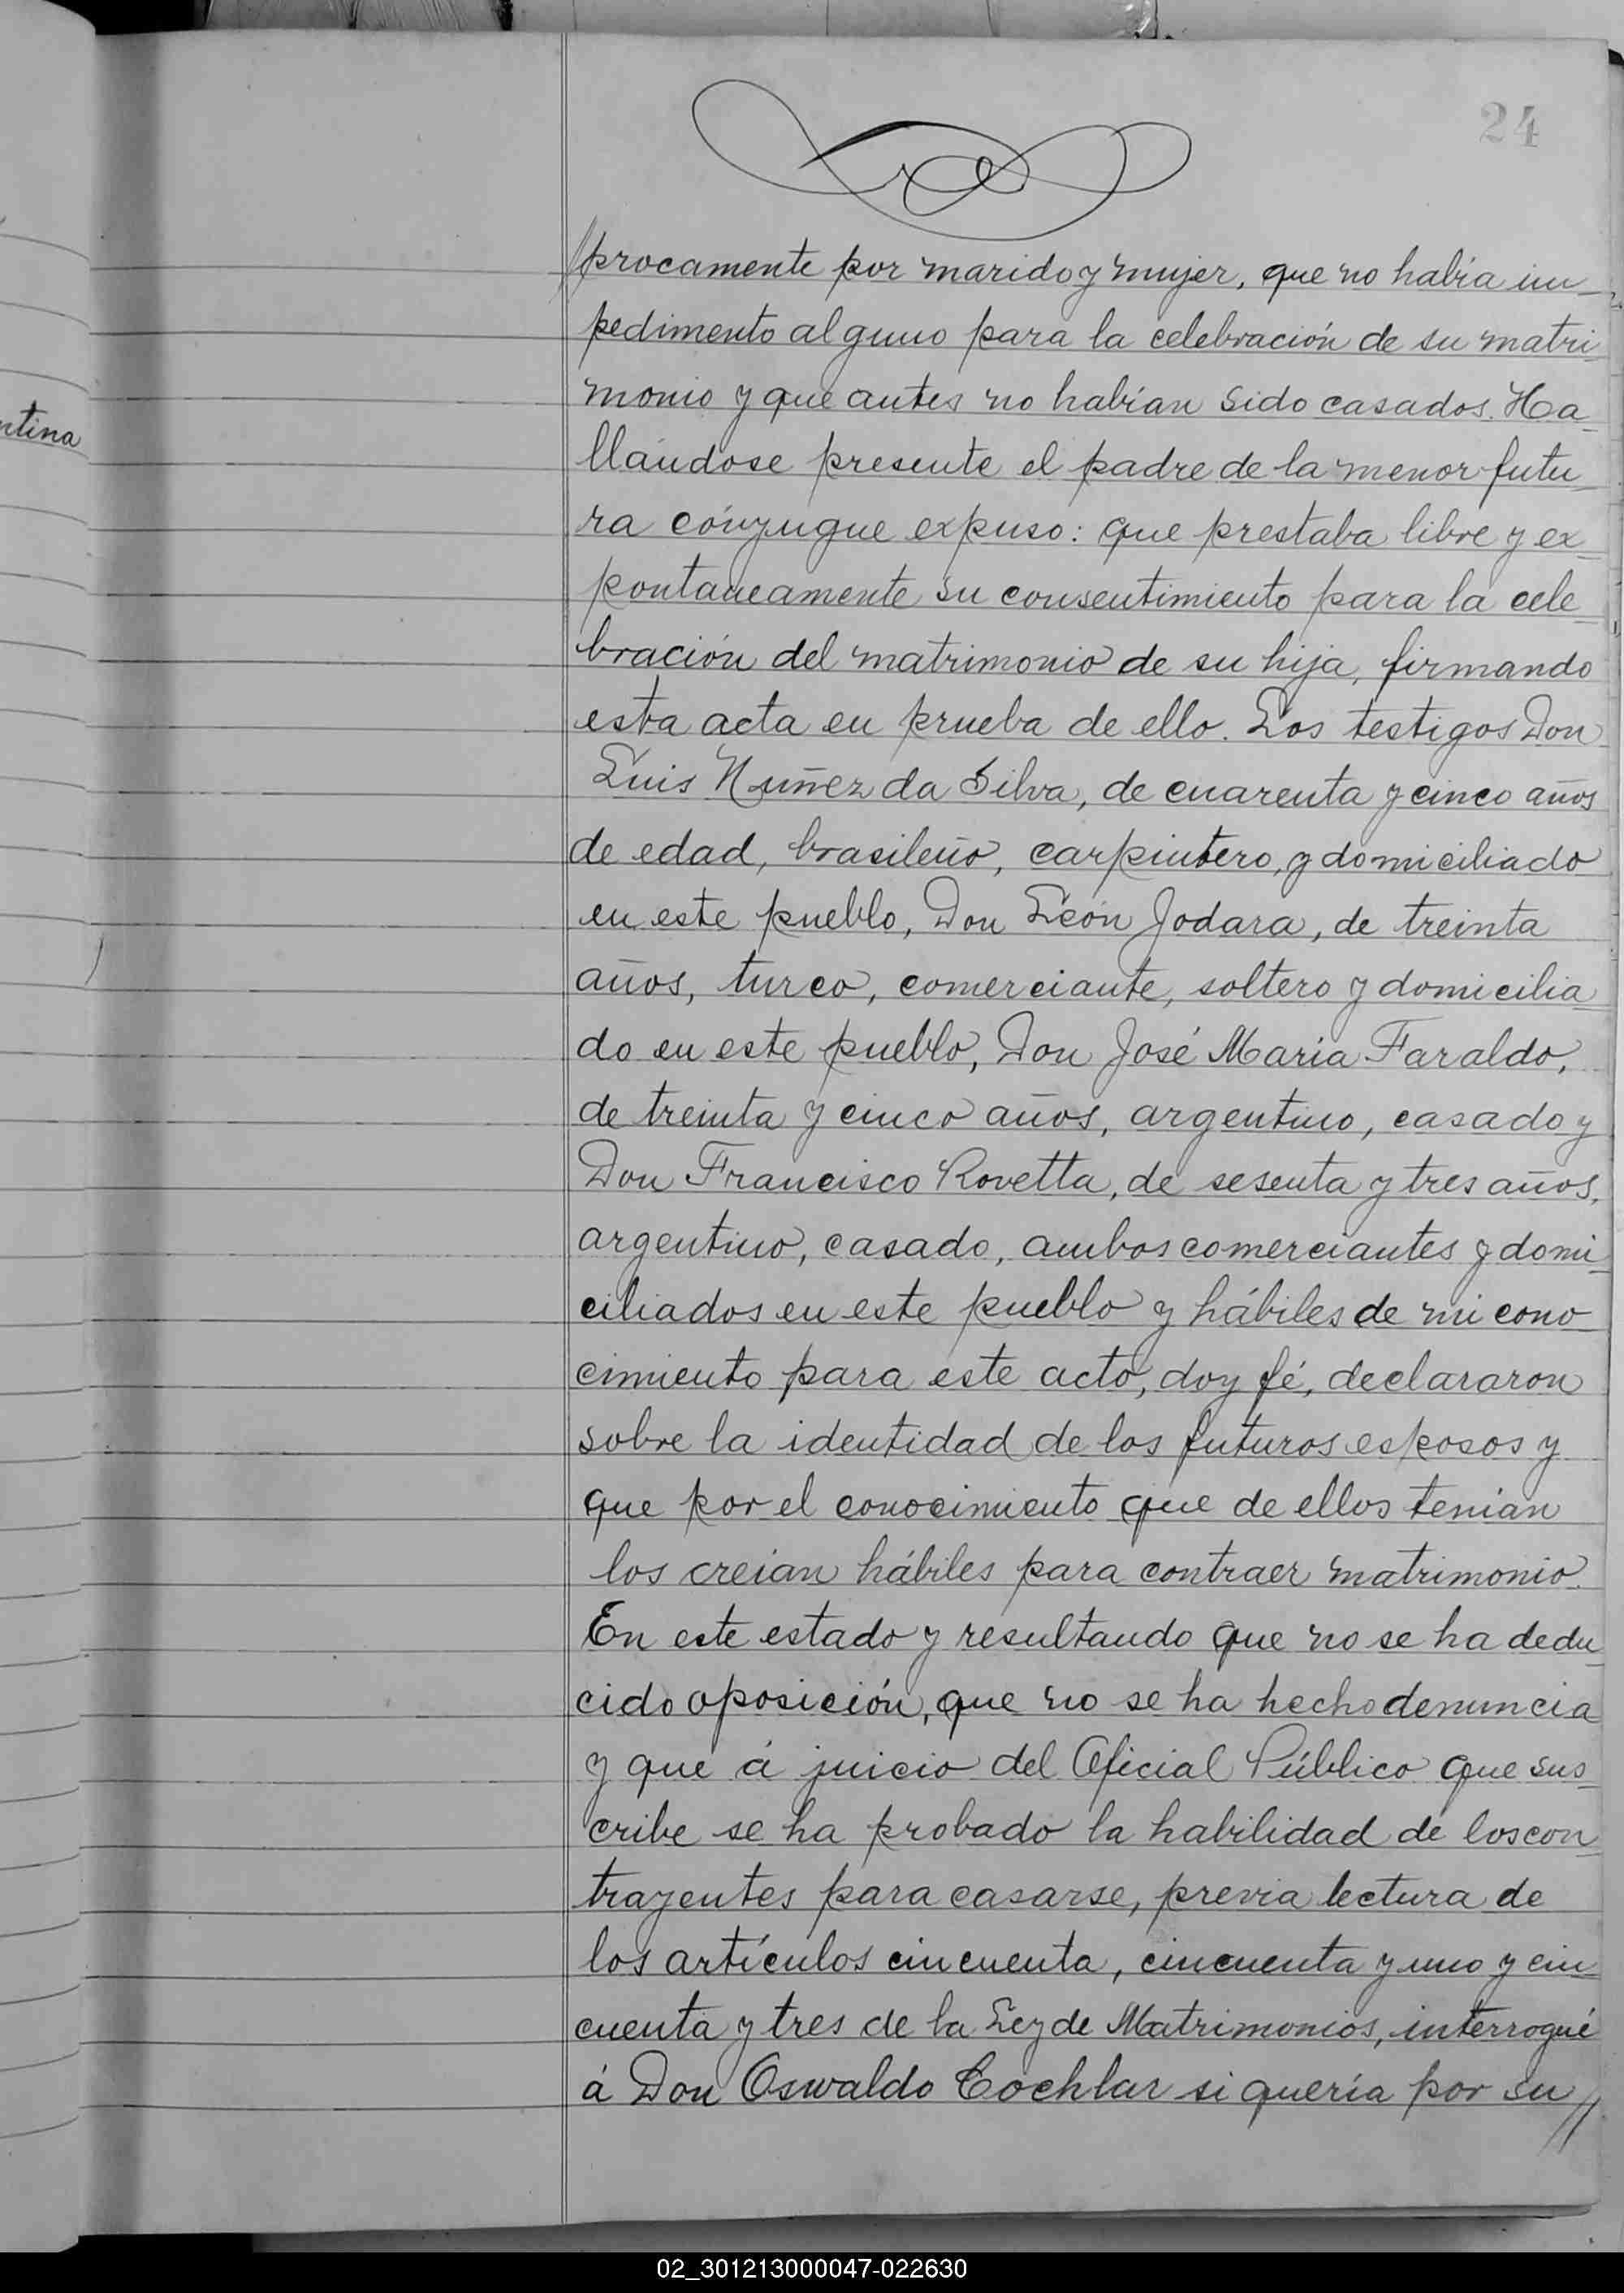 24
ntina
//procamente por marido y mujer, que no había im-
pedimento alguno para la celebración de su matri-
monio y que antes no habían sido casados. Ha-
llándose presente el padre de la menor futu-
ra cónyugue expuso: que prestaba libre y ex-
pontaneamente su consentimiento para la cele-
bración del matrimonio de su hija, firmando
esta acta en prueba de ello. Los testigos Don
Luis Nuñez da Silva, de cuarenta y cinco años
de edad, brasileño, carpintero, y domiciliado
en este pueblo, Don León Jodara, de treinta
años, turco, comerciante, soltero y domicilia-
do en este pueblo, Don José Maria Faraldo,
de treinta y cinco años, argentino, casado y
Don Francisco Rovetta, de sesenta y tres años,
argentino, casado, ambos comerciantes y domi-
ciliados en este pueblo y hábiles de mi cono-
cimiento para este acto, doy fé, declararon
sobre la identidad de los futuros esposos y
que por el conocimiento que de ellos tenian
los creian hábiles para contraer matrimonio.
En este estado y resultando que no se ha dedu-
cido oposición, que no se ha hecho denuncia
y que á juicio del Oficial Público que sus-
cribe se ha probado la habilidad de los con-
trayentes para casarse, previa lectura de
los artículos cincuenta, cincuenta y uno y cin-
cuenta y tres de la Ley de Matrimonios, interrogué
á Don Oswaldo Cochlar si quería por su//
02_301213000047-022630